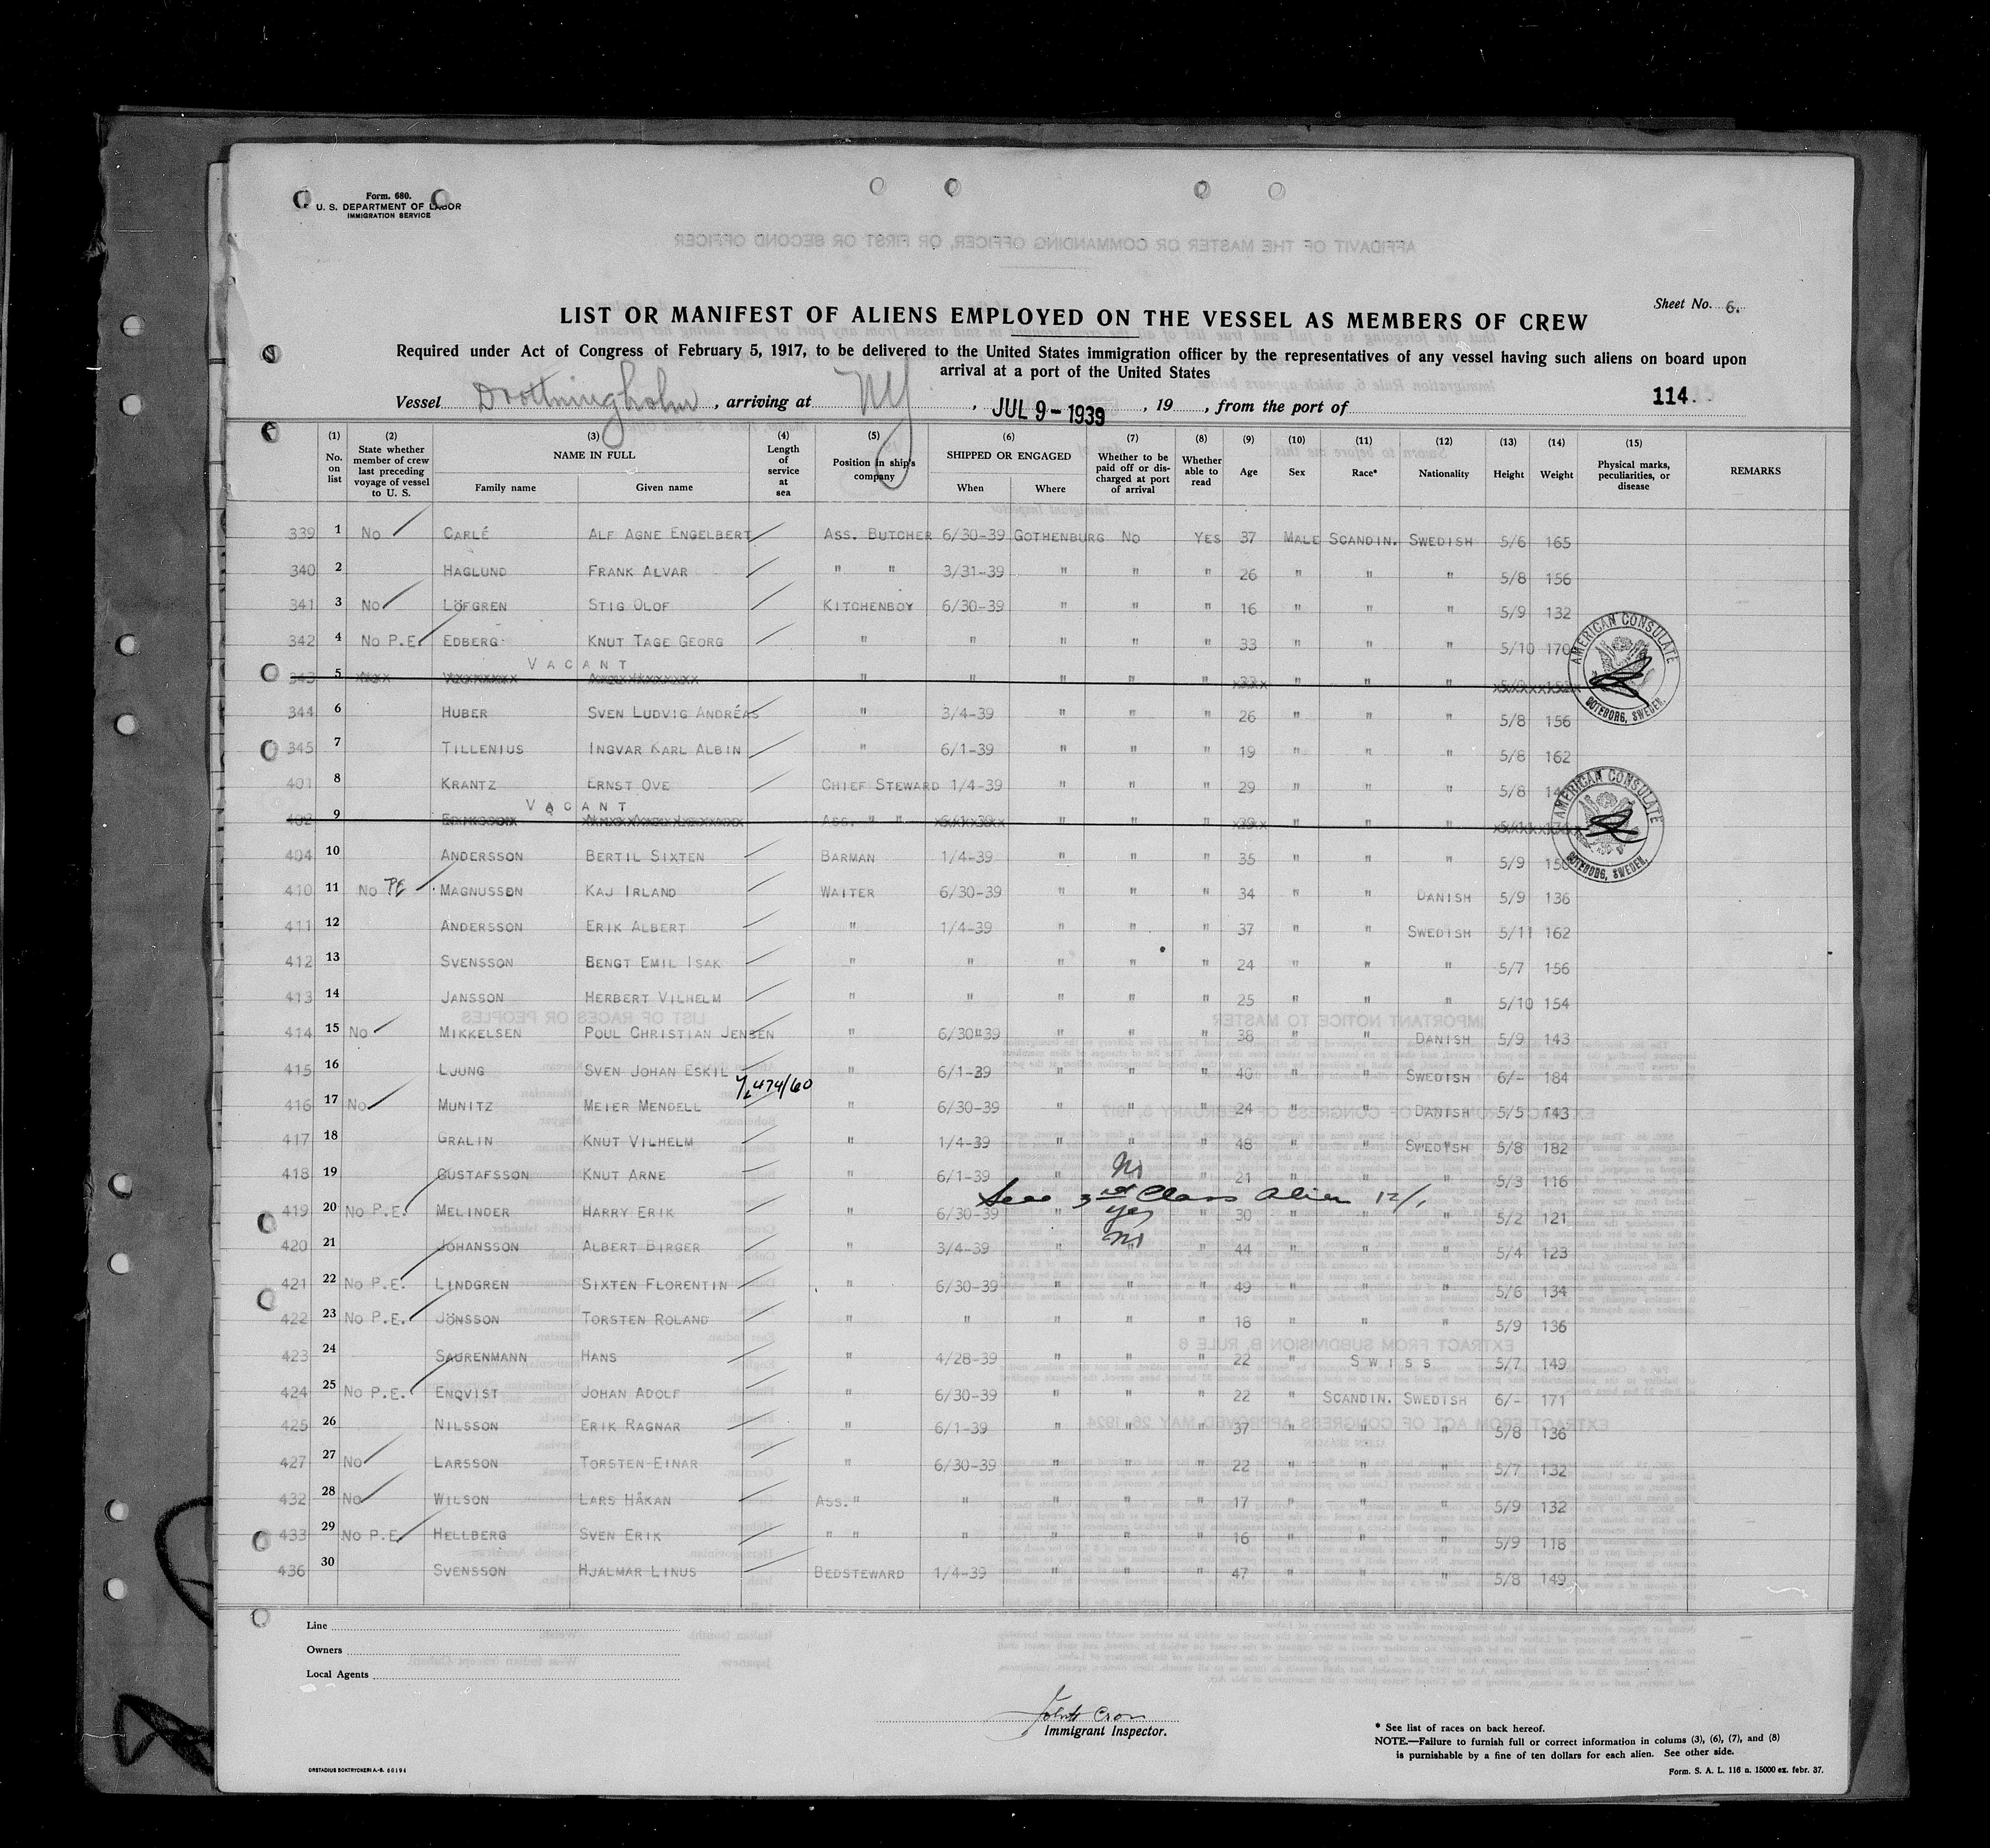 Form. 680.
U. S. DEPARTMENT OF LABOR
IMMIGRATION SERVICE
Sheet No. 6.
LIST OR MANIFEST OF ALIENS EMPLOYED ON THE VESSEL AS MEMBERS OF CREW
Required under Act of Congress of February 5, 1917, to be delivered to the United States immigration officer by the representatives of any vessel having such aliens on board upon
arrival at a port of the United States
Vessel Drottningholm, arriving at NY, JUL 9-1939, 19, from the port of 114.
(1) No. on list (2) State whether member of crew last preceding voyage of vessel to U. S. (3) NAME IN FULL Family name Given name (4) Length of service at sea (5) Position in ship's company (6) SHIPPED OR ENGAGED When Where (7) Whether to be paid off or discharged at port of arrival (8) Whether able to read (9) Age (10) Sex (11) Race* (12) Nationality (13) Height (14) Weight (15) Physical marks, peculiarities, or disease REMARKS
339 1 No CARLÉ ALF AGNE ENGELBERT ASS. BUTCHER 6/30-39 GOTHENBURG NO YES 37 MALE SCANDIN. SWEDISH 5/6 165
340 2 HAGLUND FRANK ALVAR " " 3/31-39 " " " 26 " " " 5/8 156
341 3 No LÖFGREN STIG OLOF KITCHENBOY 6/30-39 " " " 16 " " " 5/9 132
342 4 No P.E. EDBERG KNUT TAGE GEORG " " " " " 33 " " " 5/10 170
VACANT
343 5 " " " " " " " "
344 6 HUBER SVEN LUDVIG ANDRÉAS " 3/4-39 " " " 26 " " " 5/8 156
345 7 TILLENIUS INGVAR KARL ALBIN " 6/1-39 " " " 19 " " " 5/8 162
401 8 KRANTZ ERNST OVE CHIEF STEWARD 1/4-39 " " " 29 " " " 5/8
VACANT
402 9 ASS. " " " " " " " "
404 10 ANDERSSON BERTIL SIXTEN BARMAN 1/4-39 " " " 35 " " " 5/9
410 11 No PE MAGNUSSON KAJ IRLAND WAITER 6/30-39 " " " 34 " " DANISH 5/9 136
411 12 ANDERSSON ERIK ALBERT " 1/4-39 " " " 37 " " SWEDISH 5/11 162
412 13 SVENSSON BENGT EMIL ISAK " " " " " 24 " " " 5/7 156
413 14 JANSSON HERBERT VILHELM " " " " " 25 " " " 5/10 154
414 15 No MIKKELSEN POUL CHRISTIAN JENSEN " 6/30-39 " " " 38 " " DANISH 5/9 143
415 16 LJUNG SVEN JOHAN ESKIL " 6/1-39 " " " 40 " " SWEDISH 6/- 184
416 17 No MUNITZ MEIER MENDELL " 6/30-39 " " " 24 " " DANISH 5/5 143
417 18 GRALIN KNUT VILHELM " 1/4-39 " " " 48 " " SWEDISH 5/8 182
418 19 GUSTAFSSON KNUT ARNE " 6/1-39 " No " 21 " " " 5/3 116
See 3rd Class Alien 12/1
419 20 No P.E. MELINDER HARRY ERIK " 6/30-39 " yes " 30 " " " 5/2 121
420 21 JOHANSSON ALBERT BIRGER " 3/4-39 " No " 44 " " " 5/4 123
421 22 No P.E. LINDGREN SIXTEN FLORENTIN " 6/30-39 " " " 49 " " " 5/6 134
422 23 No P.E. JÖNSSON TORSTEN ROLAND " " " " " 18 " " " 5/9 136
423 24 SAURENMANN HANS " 4/28-39 " " " 22 " SWISS 5/7 149
424 25 No P.E. ENQVIST JOHAN ADOLF " 6/30-39 " " " 22 " SCANDIN. SWEDISH 6/- 171
425 26 NILSSON ERIK RAGNAR " 6/1-39 " " " 37 " " " 5/8 136
427 27 No LARSSON TORSTEN EINAR " 6/30-39 " " " 22 " " " 5/7 132
432 28 No WILSON LARS HÅKAN ASS. " " " " " 17 " " " 5/9 132
433 29 No P.E. HELLBERG SVEN ERIK " " " " " " 16 " " " 5/9 118
436 30 SVENSSON HJALMAR LINUS BEDSTEWARD 1/4-39 " " " 47 " " " 5/8 149
AMERICAN CONSULATE
GOTEBORG, SWEDEN.
AMERICAN CONSULATE
GOTEBORG, SWEDEN.
Line
Owners
Local Agents
Immigrant Inspector.
* See list of races on back hereof.
NOTE.—Failure to furnish full or correct information in colums (3), (6), (7), and (8)
is punishable by a fine of ten dollars for each alien. See other side.
Form. S. A. L. 116 a. 15000 ex. febr. 37.